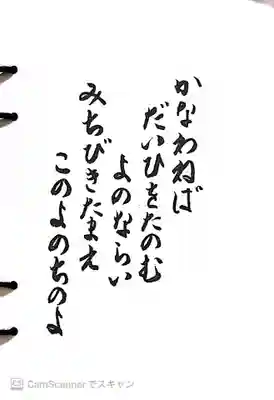 かなわねば
だいひをたのむ
よのならい
みちびきたまえ
このよのちのよ
CamScannerでスキャン